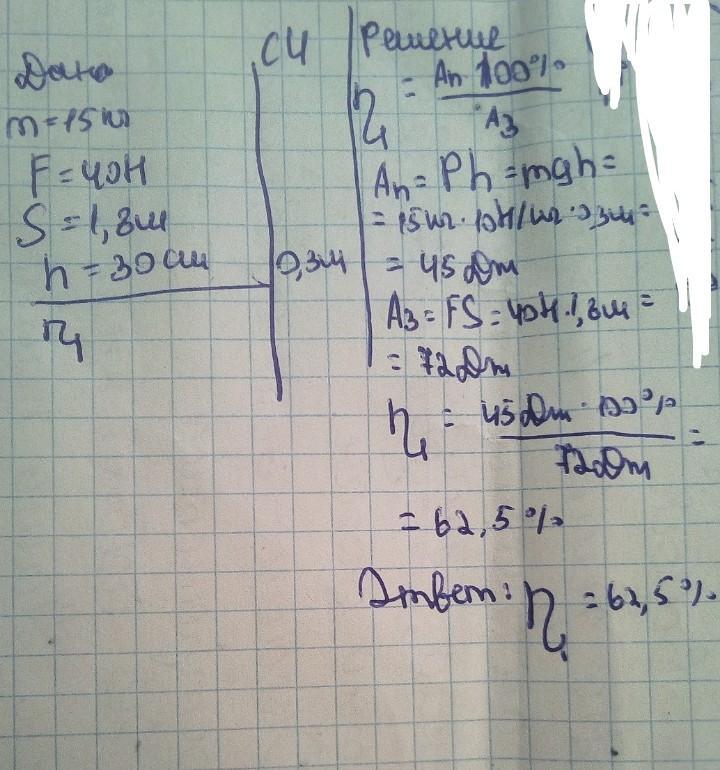 Дано
m = 15 кг
F = 40Н
S = 1,8м
h = 30 см
η
СИ
0,3м
Решение
η = Aп 100% / Aз
Aп = Ph = mgh =
= 15 кг · 10Н/кг · 0,3м =
= 45 Дж
Aз = FS = 40Н · 1,8м =
= 72 Дж
η = 45 Дж · 100% / 72 Дж =
= 62,5%
Ответ: η = 62,5%